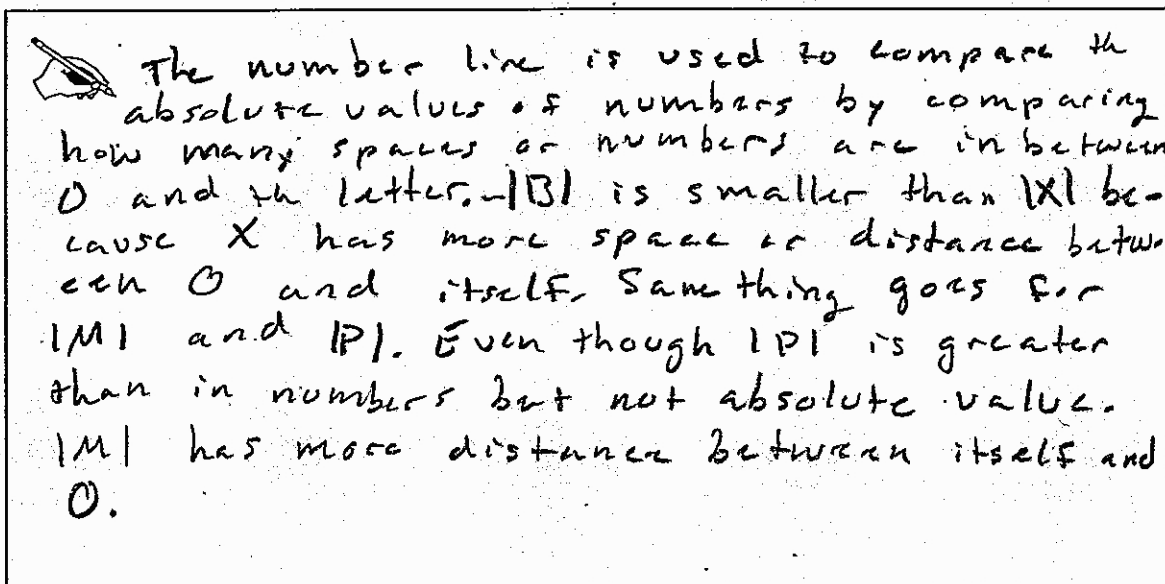 The number line is used to compare th
absolute values of numbers by comparing
how many spaces or numbers are in between
0 and th letter. |B| is smaller than |X| be-
cause X has more space or distance betw-
een 0 and itself. Same thing goes for
|M| and |P|. Even though |P| is greater
than in numbers but not absolute value.
|M| has more distance between itself and
0.